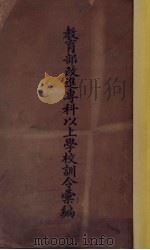 教育部改進專科以上學校訓令彙編